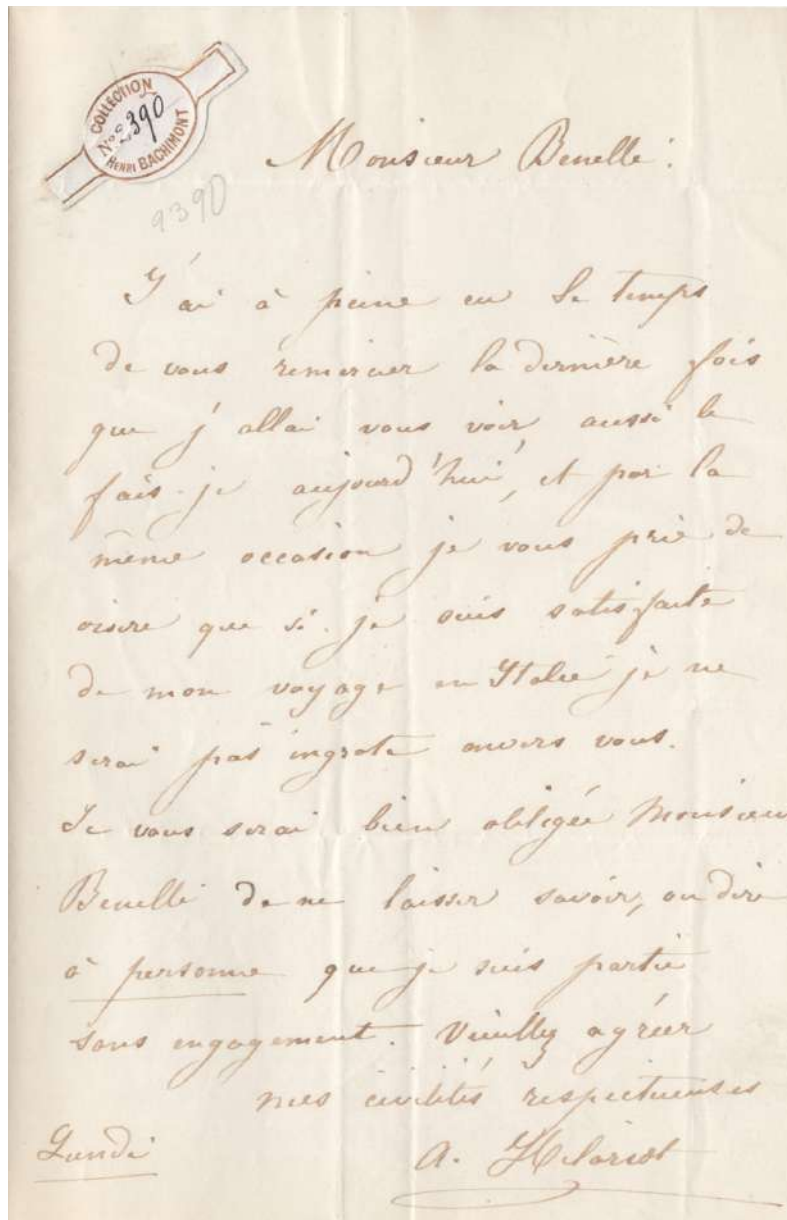 COLLECTION
No 2390
HENRI BACHIMONT
2390
Monsieur Benelli:
J'ai à peine eu le temps
de vous remercier la dernière fois
que j'allai vous voir aussi le
fais-je aujourd'hui, et par la
même occasion je vous prie de
croire que si je suis satisfaite
de mon voyage en Italie je ne
serai pas ingrate envers vous.
Je vous serai bien obligée Monsieur
Benelli de ne laisser savoir, ou dire
à personne que je suis partie
sans engagement. Veuillez agréer
mes civilités respectueuses
Lundi
A.